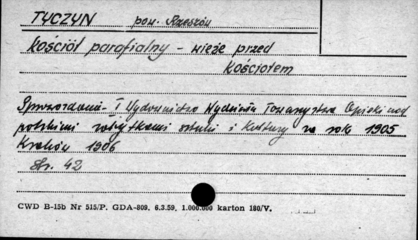 TYCZYN pow. Rzeszów
Kościół parafialny - wieże przed
kościołem
Sprawozdanie I Wydawnictwo Wydziału Towarzystwa Opieki nad
polskimi zabytkami sztuki i kultury za rok 1905
Kraków 1906
Str. 42
CWD B-15b Nr 515/P. GDA-808. 6.3.59, 1.000.000 karton 180/V.